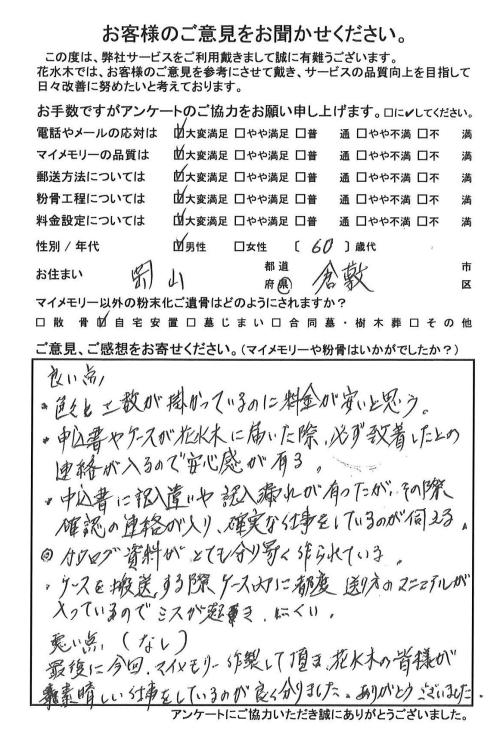 お客様のご意見をお聞かせください。
この度は、弊社サービスをご利用戴きまして誠に有難うございます。
花水木では、お客様のご意見を参考にさせて戴き、サービスの品質向上を目指して
日々改善に努めたいと考えております。
お手数ですがアンケートのご協力をお願い申し上げます。□に✔してください。
電話やメールの応対は ☑大変満足 □やや満足 □普 通 □やや不満 □不 満
マイメモリーの品質は ☑大変満足 □やや満足 □普 通 □やや不満 □不 満
郵送方法については ☑大変満足 □やや満足 □普 通 □やや不満 □不 満
粉骨工程については ☑大変満足 □やや満足 □普 通 □やや不満 □不 満
料金設定については ☑大変満足 □やや満足 □普 通 □やや不満 □不 満
性別/年代 ☑男性 □女性 〔 60 〕歳代
お住まい 岡山 都道府県 倉敷 市区
マイメモリー以外の粉末化ご遺骨はどのようにされますか?
□散骨 ☑自宅安置 □墓じまい □合同墓・樹木葬 □その他
ご意見、ご感想をお寄せください。(マイメモリーや粉骨はいかがでしたか?)
良い点,
・色々と工数が掛かっているのに料金が安いと思う。
・申込書やケースが花水木に届いた際、必ず到着したとの
連絡が入るので安心感が有る。
・申込書に記入違いや記入漏れが有ったが、その際
確認の連絡が入り、確実な仕事をしているのが伺える。
◎カタログ資料がとても分り易く作られている。
・ケースを搬送する際、ケース内に都度送り方のマニュアルが
入っているのでミスが起きにくい。
悪い点 (なし)
最後に今回、マイメモリー作製して頂き、花水木の皆様が
素晴しい仕事をしているのが良く分りました。ありがとうございました。
アンケートにご協力いただき誠にありがとうございました。